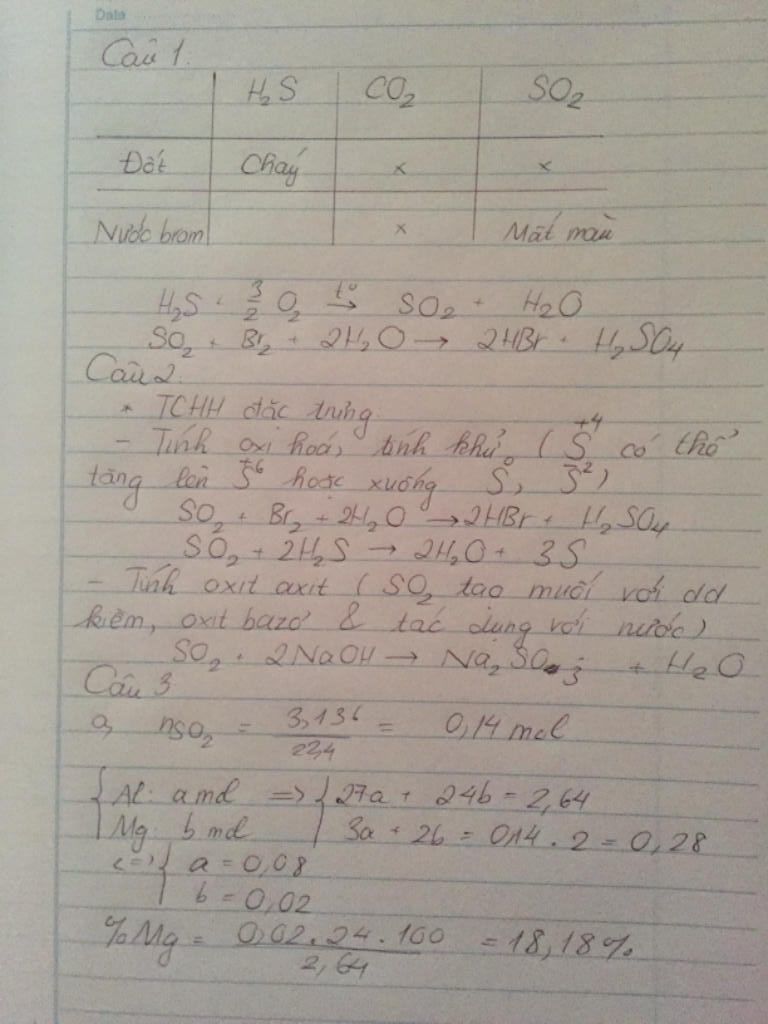 Data
Câu 1.
H₂S CO₂ SO₂
Đốt Cháy × ×
Nước brom × Mất màu
H₂S + 3/2 O₂ →(t°) SO₂ + H₂O
SO₂ + Br₂ + 2H₂O → 2HBr + H₂SO₄
Câu 2.
* TCHH đặc trưng:
- Tính oxi hoá, tính khử. (S⁺⁴ có thể
tăng lên S⁺⁶ hoặc xuống S⁰, S⁻²)
SO₂ + Br₂ + 2H₂O → 2HBr + H₂SO₄
SO₂ + 2H₂S → 2H₂O + 3S
- Tính oxit axit (SO₂ tạo muối với dd
kiềm, oxit bazơ & tác dụng với nước)
SO₂ + 2NaOH → Na₂SO₃ + H₂O
Câu 3
a, nSO₂ = 3,136/22,4 = 0,14 mol
{ Al: a mol => { 27a + 24b = 2,64
Mg: b mol 3a + 2b = 0,14 . 2 = 0,28
<=> { a = 0,08
b = 0,02
%Mg = 0,02.24.100/2,64 = 18,18%